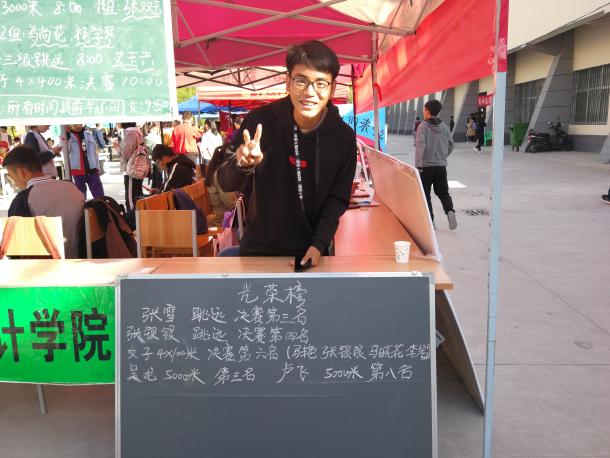 3000米 8:00
2组:马尚花
三级跳远 8:00
4×400米决赛 10:00
:所有时间提前半小时 女:9:50
计学院
光荣榜
张雪 跳远 决赛第三名
张银银 跳远 决赛第四名
女子4×100米 决赛第六名 (马艳 张银银 马晓花 李岩)
吴龙 5000米 第三名 卢飞 5000米 第八名